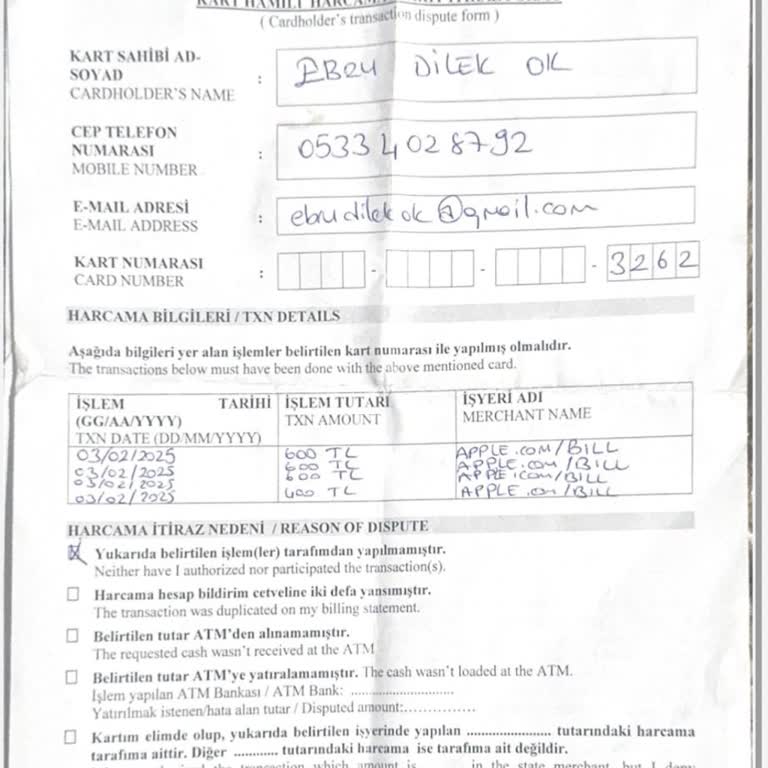 ( Cardholder's transaction dispute form )
KART SAHİBİ AD-
SOYAD : EBRU DİLEK OK
CARDHOLDER'S NAME
CEP TELEFON
NUMARASI : 0533 4028792
MOBILE NUMBER
E-MAIL ADRESİ : ebrudilekok@gmail.com
E-MAIL ADDRESS
KART NUMARASI : - - - 3262
CARD NUMBER
HARCAMA BİLGİLERİ / TXN DETAILS
Aşağıda bilgileri yer alan işlemler belirtilen kart numarası ile yapılmış olmalıdır.
The transactions below must have been done with the above mentioned card.
İŞLEM TARİHİ İŞLEM TUTARI İŞYERİ ADI
(GG/AA/YYYY) TXN AMOUNT MERCHANT NAME
TXN DATE (DD/MM/YYYY)
03/02/2025 600 TL APPLE.COM/BILL
03/02/2025 600 TL APPLE.COM/BILL
03/02/2025 600 TL APPLE.COM/BILL
03/02/2025 400 TL APPLE.COM/BILL
HARCAMA İTİRAZ NEDENİ / REASON OF DISPUTE
Yukarıda belirtilen işlem(ler) tarafımdan yapılmamıştır.
Neither have I authorized nor participated the transaction(s).
Harcama hesap bildirim cetveline iki defa yansımıştır.
The transaction was duplicated on my billing statement.
Belirtilen tutar ATM'den alınamamıştır.
The requested cash wasn't received at the ATM
Belirtilen tutar ATM'ye yatıralamamıştır. The cash wasn't loaded at the ATM.
İşlem yapılan ATM Bankası / ATM Bank: ..........................
Yatırılmak istenen/hata alan tutar / Disputed amount:..................
Kartım elimde olup, yukarıda belirtilen işyerinde yapılan ...................... tutarındaki harcama
tarafıma aittir. Diğer ............ tutarındaki harcama ise tarafıma ait değildir.